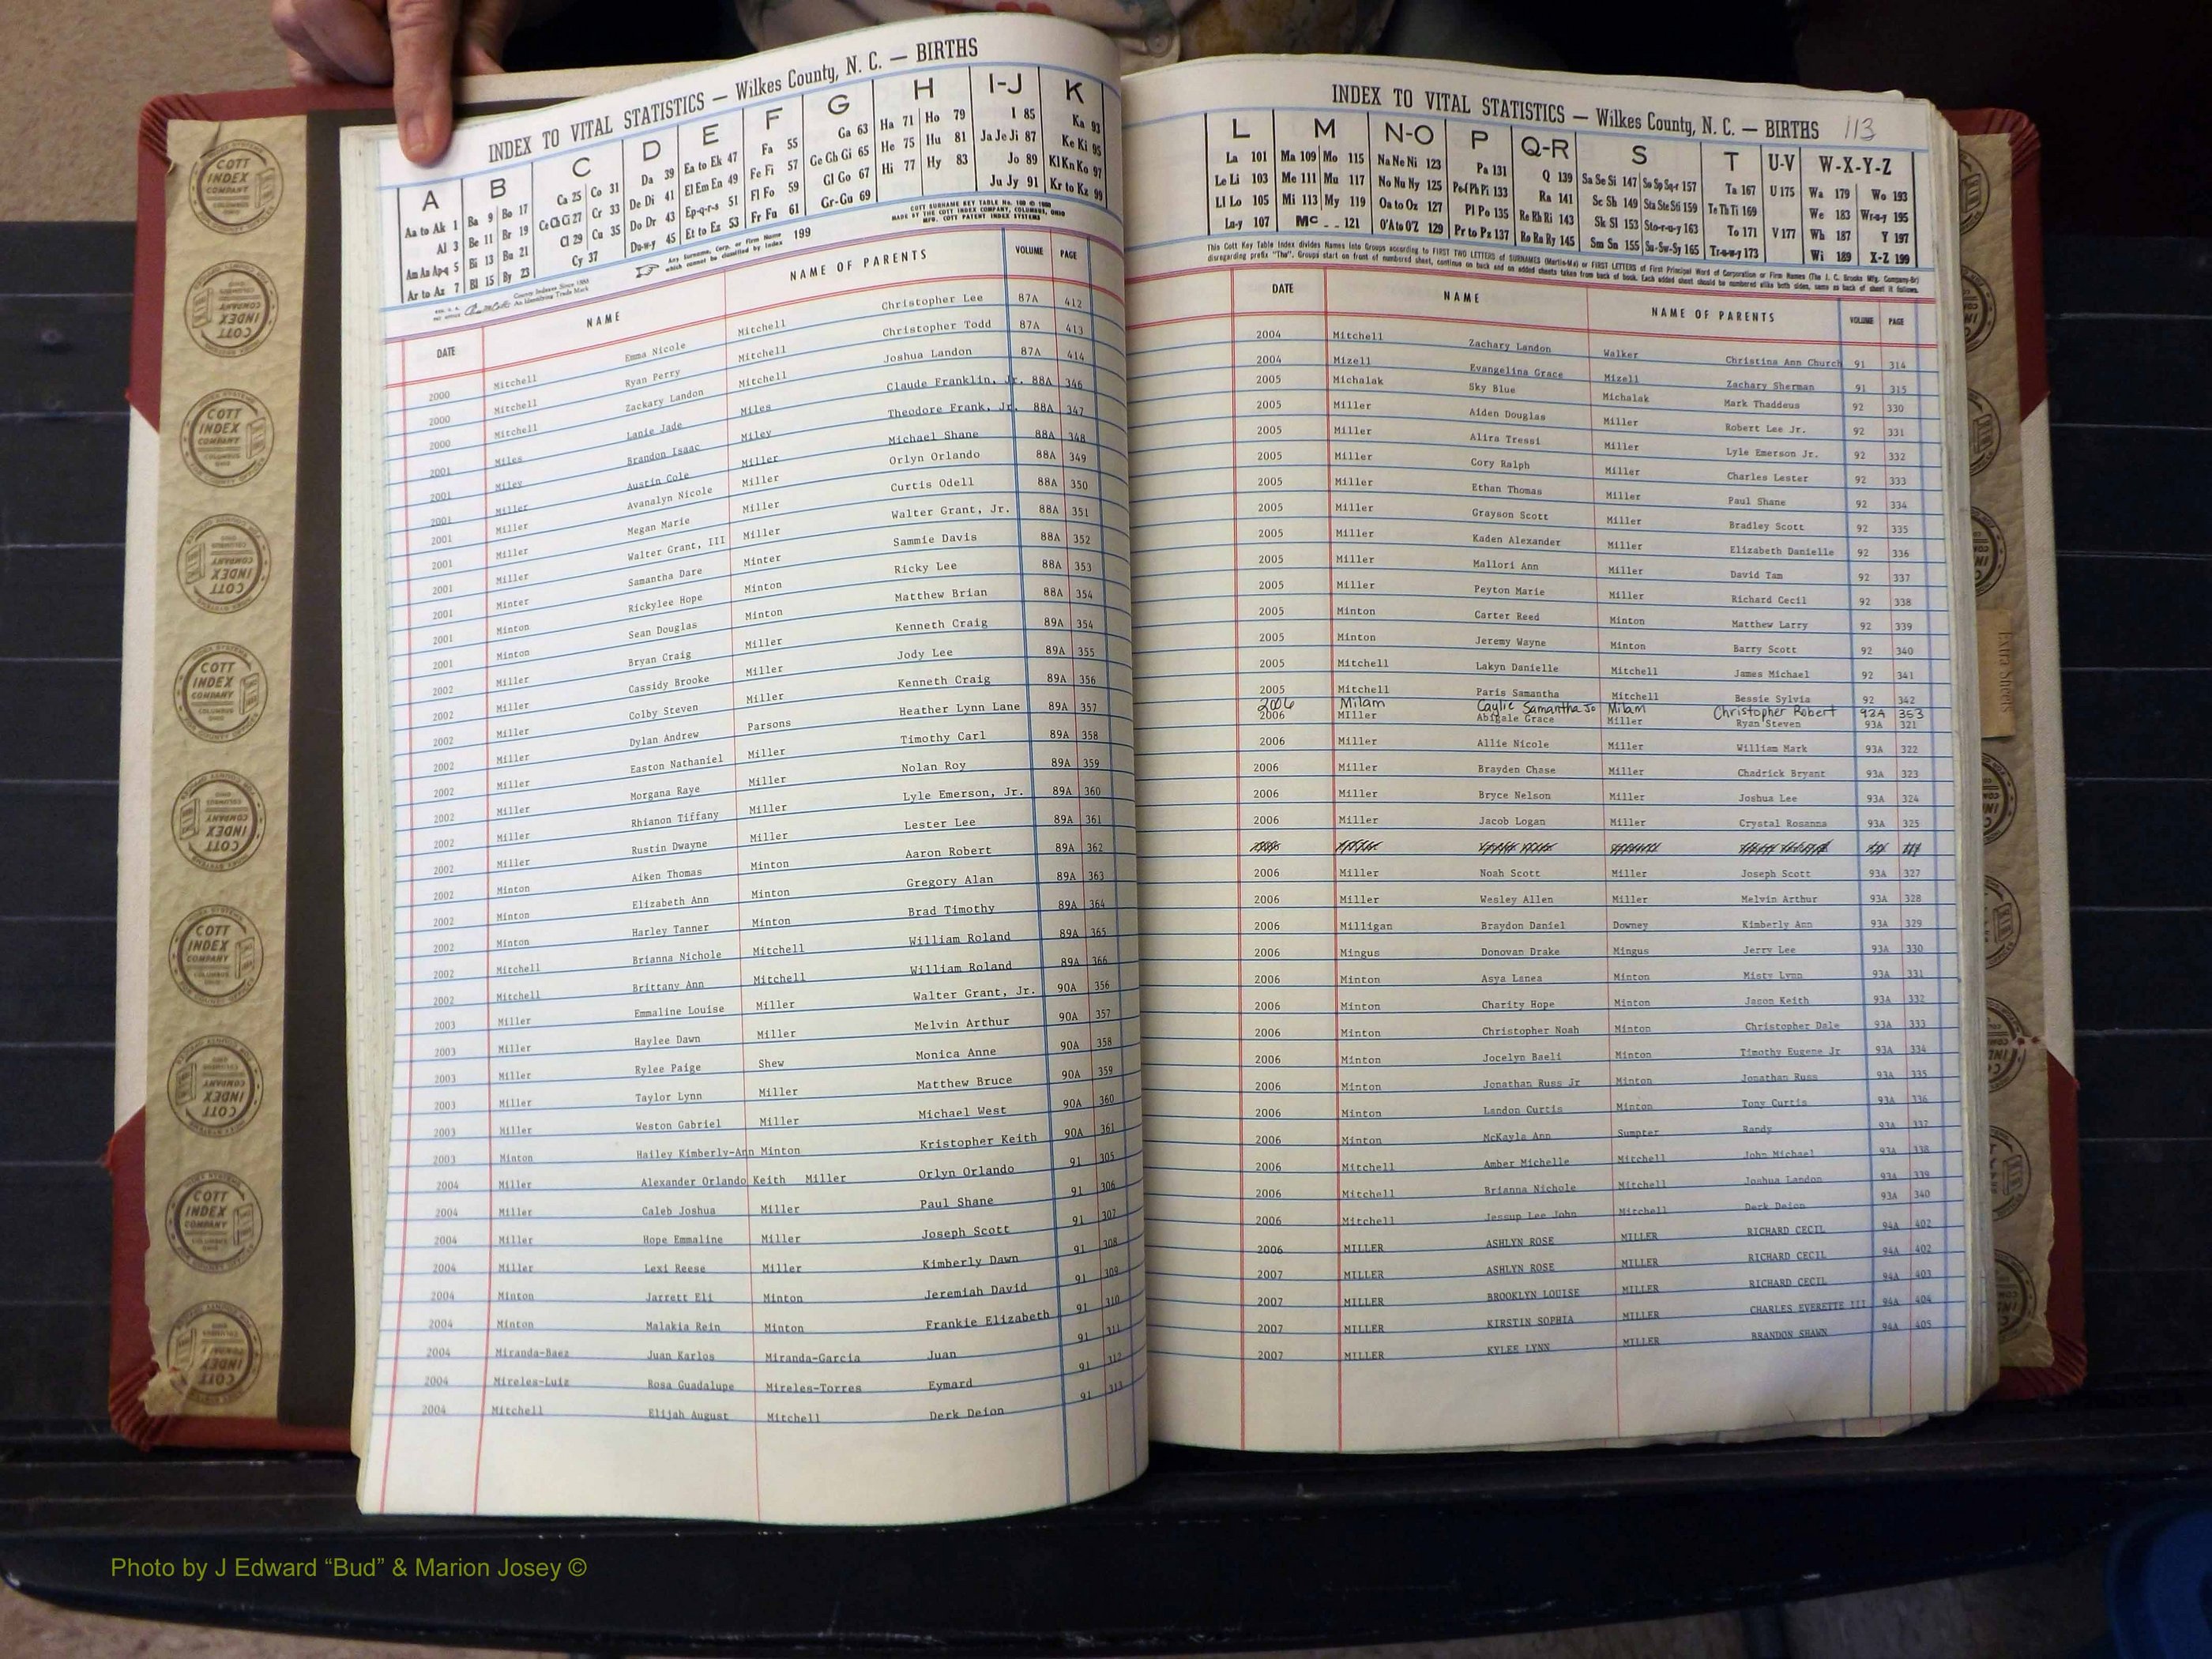 INDEX TO VITAL STATISTICS — Wilkes County, N. C. — BIRTHS
A B C D E F G H I-J K
Aa to Ak 1 Ba 9 Bo 17 Ca 25 Co 31 Da 39 Ea to Ek 47 Fa 55 Ga 63 Ha 71 Ho 79 I 85 Ka 93
Al 3 Be 11 Br 19 Ce Ch Ci 27 Cr 33 De Di 41 El Em En 49 Fe Fi 57 Ge Gh Gi 65 He 75 Hu 81 Ja Je Ji 87 Ke Ki 95
Am An Ap-q 5 Bi 13 Bu 21 Cl 29 Cu 35 Do Dr 43 Ep-q-r-s 51 Fl Fo 59 Gl Go 67 Hi 77 Hy 83 Jo 89 Kl Kn Ko 97
Ar to Az 7 Bl 15 By 23 Cy 37 Du-w-y 45 Et to Ez 53 Fr Fu 61 Gr-Gu 69 Ju Jy 91 Kr to Kz 99
Any Surname, Corp. or Firm Name which cannot be classified by Index 199
COTT SURNAME KEY TABLE
MADE BY THE COTT INDEX COMPANY, COLUMBUS, OHIO
MFG. COTT PATENT INDEX SYSTEMS
County Indexes Since 1888
An Identifying Trade Mark
DATE NAME NAME OF PARENTS VOLUME PAGE
2000 Mitchell Emma Nicole Mitchell Christopher Lee 87A 412
2000 Mitchell Ryan Perry Mitchell Christopher Todd 87A 413
2000 Mitchell Zackary Landon Mitchell Joshua Landon 87A 414
2001 Miles Lanie Jade Miles Claude Franklin, Jr. 88A 346
2001 Miley Brandon Isaac Miley Theodore Frank, Jr. 88A 347
2001 Miller Austin Cole Miller Michael Shane 88A 348
2001 Miller Avanalyn Nicole Miller Orlyn Orlando 88A 349
2001 Miller Megan Marie Miller Curtis Odell 88A 350
2001 Miller Walter Grant, III Miller Walter Grant, Jr. 88A 351
2001 Minter Samantha Dare Minter Sammie Davis 88A 352
2001 Minton Rickylee Hope Minton Ricky Lee 88A 353
2001 Minton Sean Douglas Minton Matthew Brian 88A 354
2002 Miller Bryan Craig Miller Kenneth Craig 89A 354
2002 Miller Cassidy Brooke Miller Jody Lee 89A 355
2002 Miller Colby Steven Miller Kenneth Craig 89A 356
2002 Miller Dylan Andrew Parsons Heather Lynn Lane 89A 357
2002 Miller Easton Nathaniel Miller Timothy Carl 89A 358
2002 Miller Morgana Raye Miller Nolan Roy 89A 359
2002 Miller Rhianon Tiffany Miller Lyle Emerson, Jr. 89A 360
2002 Miller Rustin Dwayne Miller Lester Lee 89A 361
2002 Minton Aiken Thomas Minton Aaron Robert 89A 362
2002 Minton Elizabeth Ann Minton Gregory Alan 89A 363
2002 Minton Harley Tanner Minton Brad Timothy 89A 364
2002 Mitchell Brianna Nichole Mitchell William Roland 89A 365
2002 Mitchell Brittany Ann Mitchell William Roland 89A 366
2003 Miller Emmaline Louise Miller Walter Grant, Jr. 90A 356
2003 Miller Haylee Dawn Miller Melvin Arthur 90A 357
2003 Miller Rylee Paige Shew Monica Anne 90A 358
2003 Miller Taylor Lynn Miller Matthew Bruce 90A 359
2003 Miller Weston Gabriel Miller Michael West 90A 360
2003 Minton Hailey Kimberly-Ann Minton Kristopher Keith 90A 361
2004 Miller Alexander Orlando Keith Miller Orlyn Orlando 91 305
2004 Miller Caleb Joshua Miller Paul Shane 91 306
2004 Miller Hope Emmaline Miller Joseph Scott 91 307
2004 Miller Lexi Reese Miller Kimberly Dawn 91 308
2004 Minton Jarrett Eli Minton Jeremiah David 91 309
2004 Minton Malakia Rein Minton Frankie Elizabeth 91 310
2004 Miranda-Baez Juan Karlos Miranda-Garcia Juan 91 311
2004 Mireles-Luiz Rosa Guadalupe Mireles-Torres Eymard 91 312
2004 Mitchell Elijah August Mitchell Derk Deion 91 313
INDEX TO VITAL STATISTICS — Wilkes County, N. C. — BIRTHS 113
L M N-O P Q-R S T U-V W-X-Y-Z
La 101 Ma 109 Mo 115 Na Ne Ni 123 Pa 131 Q 139 Sa Se Si 147 So Sp Sq-r 157 Ta 167 U 175 Wa 179 Wo 193
Le Li 103 Me 111 Mu 117 No Nu Ny 125 Pe-f Ph Pi 133 Ra 141 Sc Sh 149 Sta Ste Sti 159 Te Th Ti 169 We 183 Wr-u-y 195
Ll Lo 105 Mi 113 My 119 Oa to Oz 127 Pl Po 135 Re Rh Ri 143 Sk Sl 153 Sto-r-u-y 163 To 171 V 177 Wh 187 Y 197
Lu-y 107 Mc 121 O'A to O'Z 129 Pr to Pz 137 Ro Ru Ry 145 Sm Sn 155 Su-Sw-Sy 165 Tr-u-w-y 173 Wi 189 X-Z 199
This Cott Key Table Index divides Names into Groups according to FIRST TWO LETTERS of SURNAMES (Martin-Ma) or FIRST LETTERS of First Principal Word of Corporation or Firm Names (The J. C. Brooks Mfg. Company-Br)
disregarding prefix "The". Groups start on front of numbered sheet, continue on back and on added sheets taken from back of book. Each added sheet should be numbered alike both sides, same as back of sheet it follows.
DATE NAME NAME OF PARENTS VOLUME PAGE
2004 Mitchell Zachary Landon Walker Christina Ann Church 91 314
2004 Mizell Evangelina Grace Mizell Zachary Sherman 91 315
2005 Michalak Sky Blue Michalak Mark Thaddeus 92 330
2005 Miller Aiden Douglas Miller Robert Lee Jr. 92 331
2005 Miller Alira Tressi Miller Lyle Emerson Jr. 92 332
2005 Miller Cory Ralph Miller Charles Lester 92 333
2005 Miller Ethan Thomas Miller Paul Shane 92 334
2005 Miller Grayson Scott Miller Bradley Scott 92 335
2005 Miller Kaden Alexander Miller Elizabeth Danielle 92 336
2005 Miller Mallori Ann Miller David Tam 92 337
2005 Miller Peyton Marie Miller Richard Cecil 92 338
2005 Minton Carter Reed Minton Matthew Larry 92 339
2005 Minton Jeremy Wayne Minton Barry Scott 92 340
2005 Mitchell Lakyn Danielle Mitchell James Michael 92 341
2005 Mitchell Paris Samantha Mitchell Bessie Sylvia 92 342
2006 Milam Caylie Samantha Jo Milam Christopher Robert 92A 353
2006 Miller Abigale Grace Miller Ryan Steven 93A 321
2006 Miller Allie Nicole Miller William Mark 93A 322
2006 Miller Brayden Chase Miller Chadrick Bryant 93A 323
2006 Miller Bryce Nelson Miller Joshua Lee 93A 324
2006 Miller Jacob Logan Miller Crystal Rosanna 93A 325
2006 Miller Noah Scott Miller Joseph Scott 93A 327
2006 Miller Wesley Allen Miller Melvin Arthur 93A 328
2006 Milligan Braydon Daniel Downey Kimberly Ann 93A 329
2006 Mingus Donovan Drake Mingus Jerry Lee 93A 330
2006 Minton Asya Lanea Minton Misty Lynn 93A 331
2006 Minton Charity Hope Minton Jason Keith 93A 332
2006 Minton Christopher Noah Minton Christopher Dale 93A 333
2006 Minton Jocelyn Baeli Minton Timothy Eugene Jr 93A 334
2006 Minton Jonathan Russ Jr Minton Jonathan Russ 93A 335
2006 Minton Landon Curtis Minton Tony Curtis 93A 336
2006 Minton McKayla Ann Sumpter Randy 93A 337
2006 Mitchell Amber Michelle Mitchell John Michael 93A 338
2006 Mitchell Brianna Nichole Mitchell Joshua Landon 93A 339
2006 Mitchell Jessup Lee John Mitchell Derk Deion 93A 340
2006 MILLER ASHLYN ROSE MILLER RICHARD CECIL 94A 402
2007 MILLER ASHLYN ROSE MILLER RICHARD CECIL 94A 402
2007 MILLER BROOKLYN LOUISE MILLER RICHARD CECIL 94A 403
2007 MILLER KIRSTIN SOPHIA MILLER CHARLES EVERETTE III 94A 404
2007 MILLER KYLEE LYNN MILLER BRANDON SHAWN 94A 405
Extra Sheets
COTT INDEX COMPANY COLUMBUS OHIO
Photo by J Edward “Bud” & Marion Josey ©